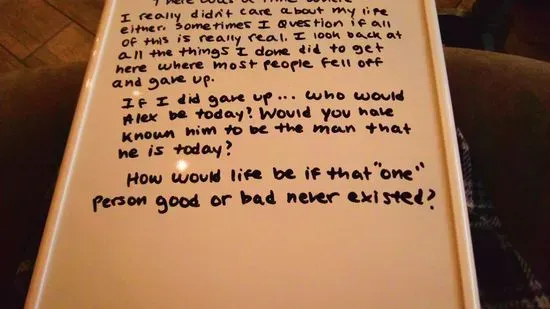 There was a time where
I really didn't care about my life
either. Sometimes I question if all
of this is really real. I look back at
all the things I done did to get
here where most people fell off
and gave up.
If I did gave up... who would
Alex be today? Would you have
known him to be the man that
he is today?
How would life be if that "one"
person good or bad never existed?